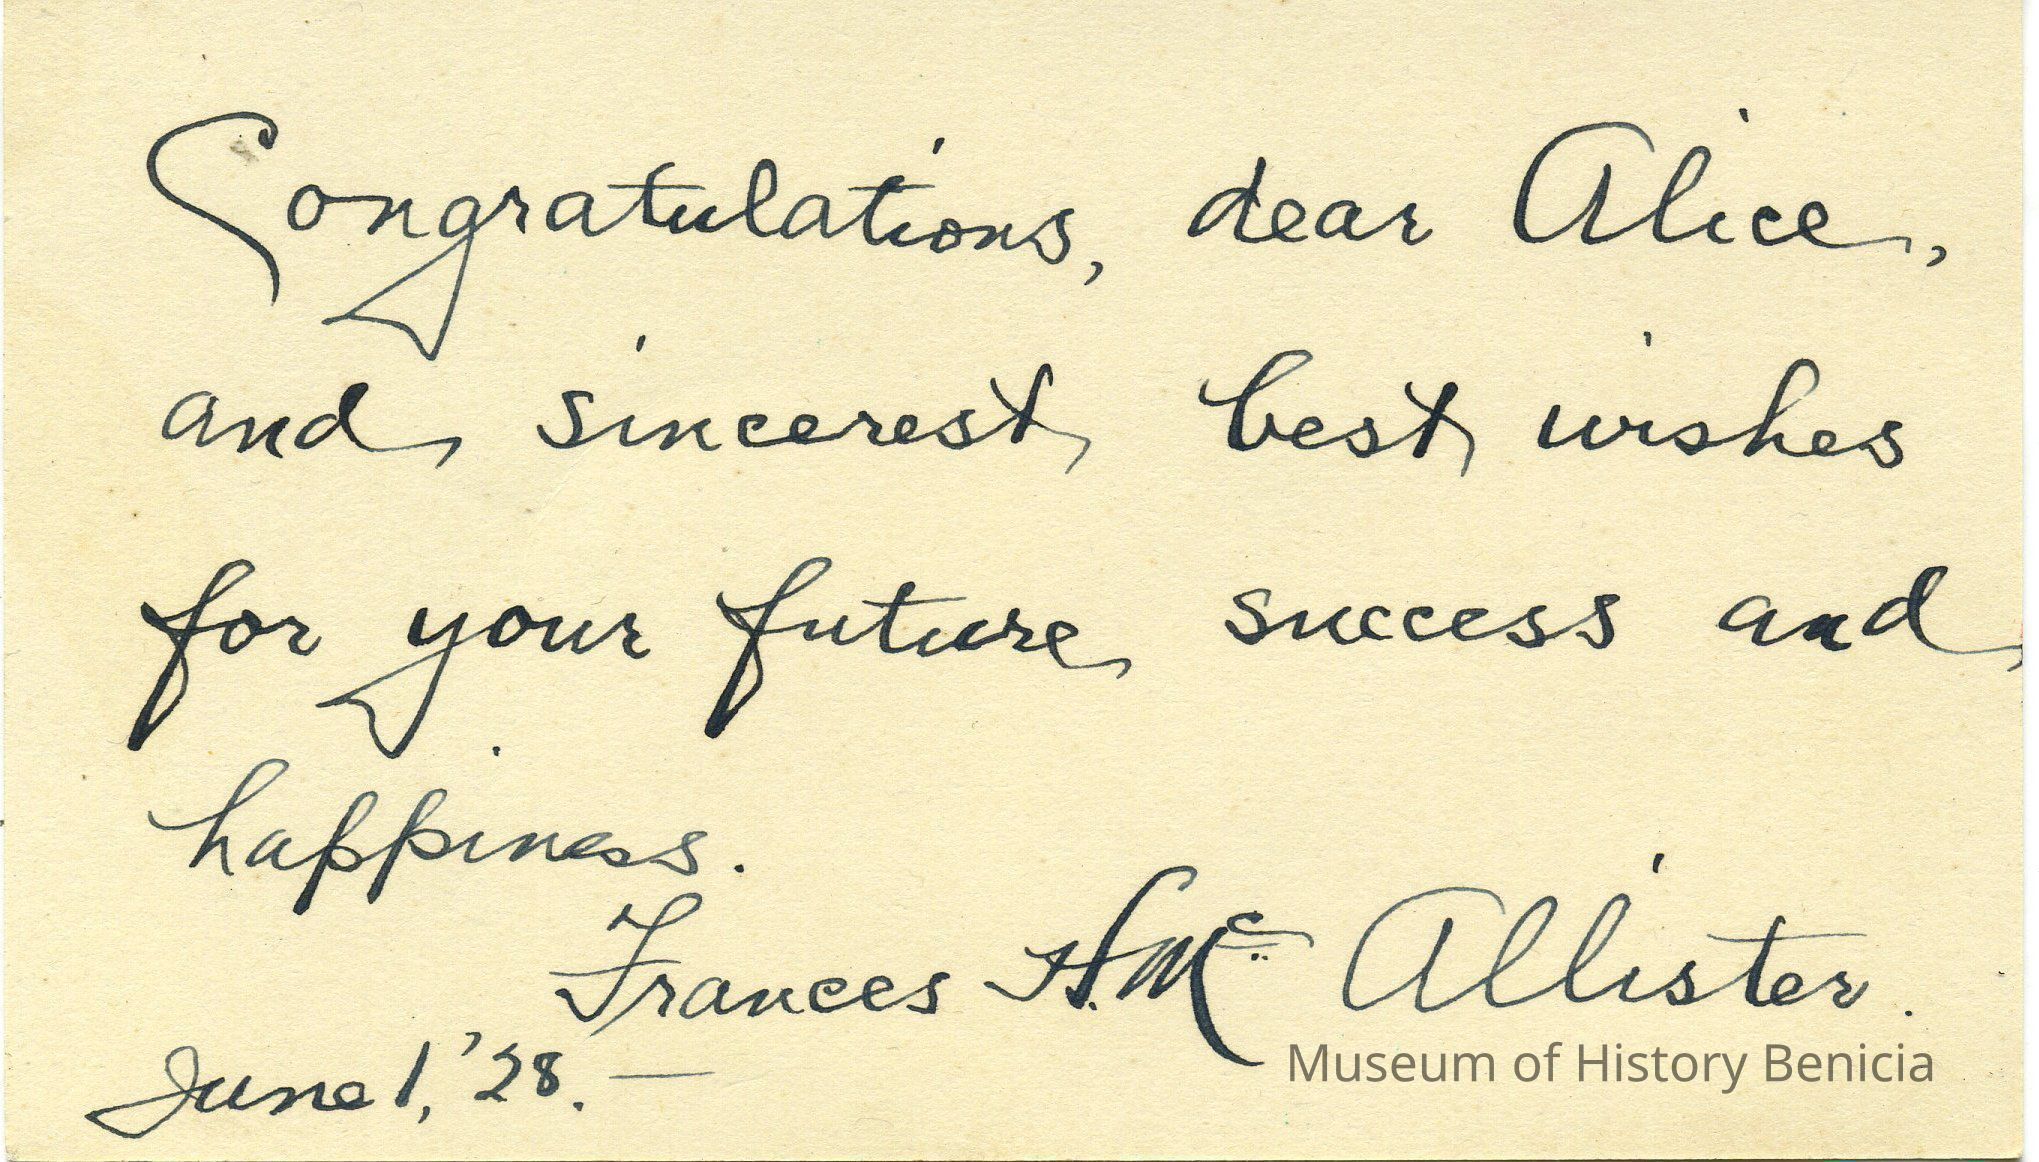 Congratulations, dear Alice,
and sincerest best wishes
for your future success and
happiness.
Frances H. Mc Allister.
June 1, '28. —
Museum of History Benicia